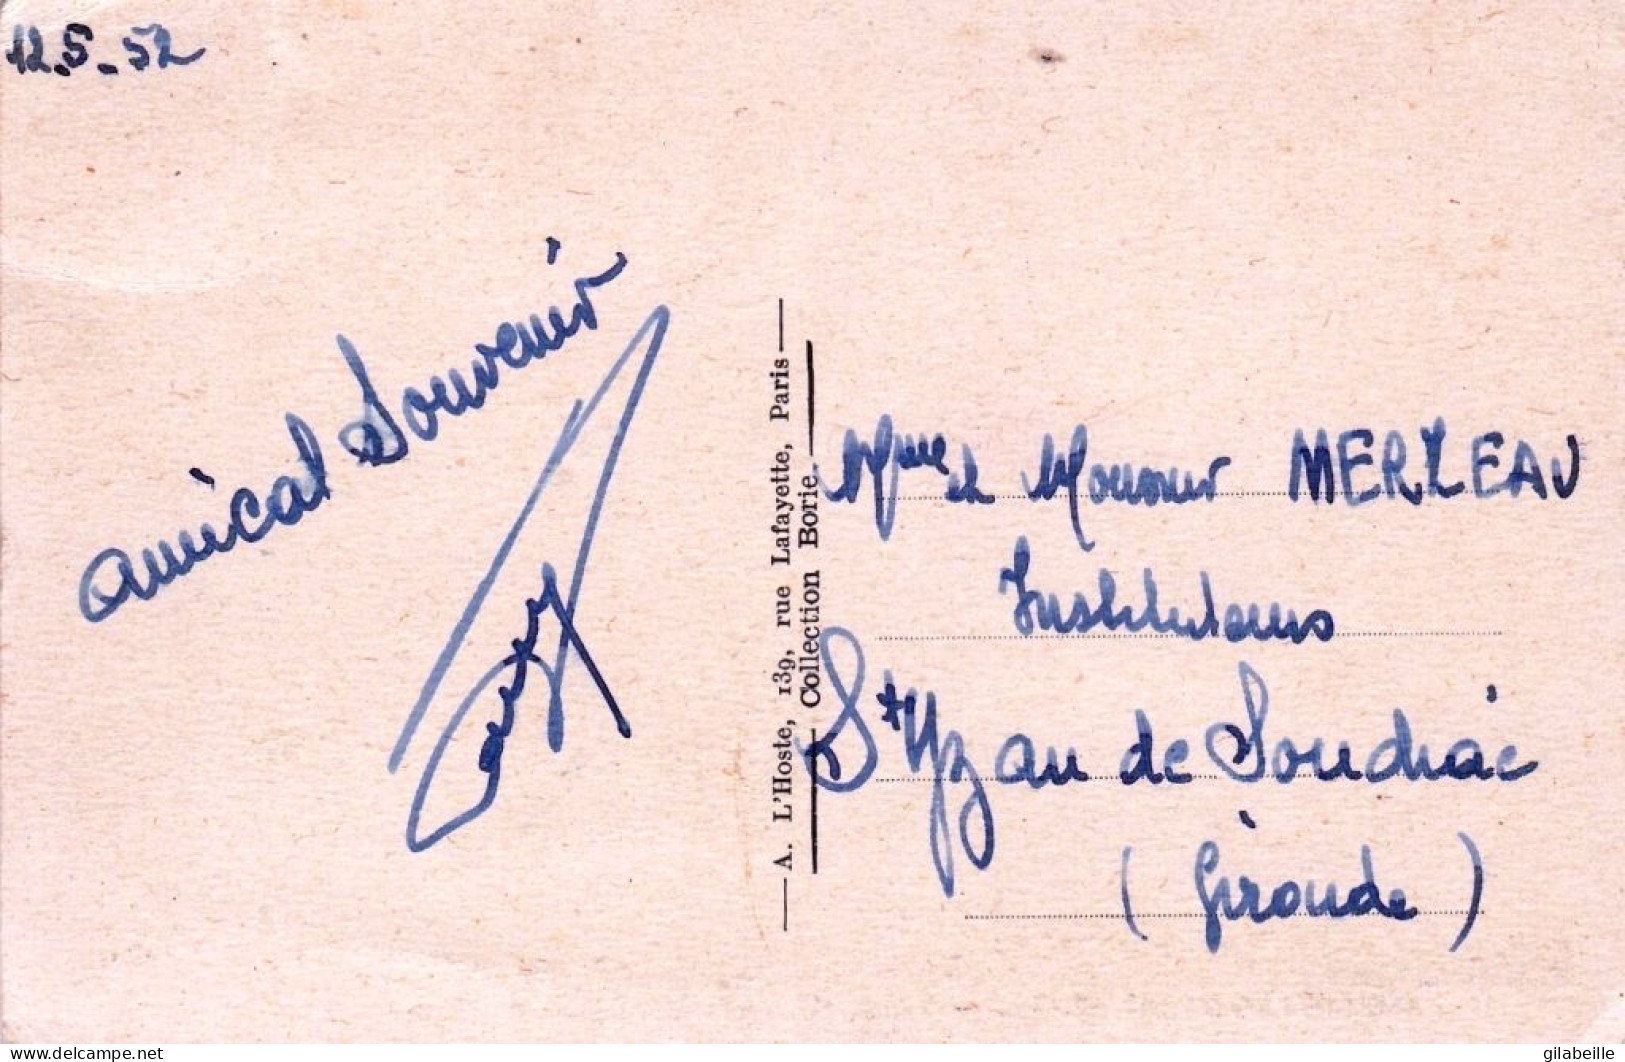 12.5-52
amical Souvenir
A. L'Hoste, 139, rue Lafayette, Paris
Collection Borie.
Mme et Monsieur MERLEAU
Instituteurs
St Yzan de Soudiac
( Gironde )
www.delcampe.net
gilabeille